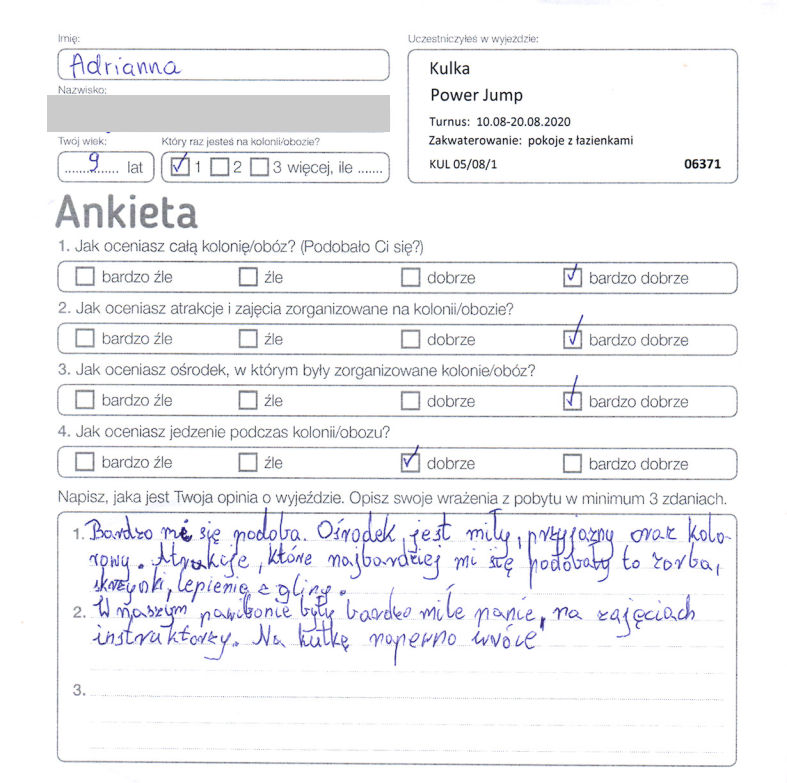 Imię:
Adrianna
Nazwisko:
Twój wiek:
9 lat
Który raz jesteś na kolonii/obozie?
1 2 3 więcej, ile .......
Uczestniczyłeś w wyjeździe:
Kulka
Power Jump
Turnus: 10.08-20.08.2020
Zakwaterowanie: pokoje z łazienkami
KUL 05/08/1 06371
Ankieta
1. Jak oceniasz całą kolonię/obóz? (Podobało Ci się?)
bardzo źle źle dobrze bardzo dobrze
2. Jak oceniasz atrakcje i zajęcia zorganizowane na kolonii/obozie?
bardzo źle źle dobrze bardzo dobrze
3. Jak oceniasz ośrodek, w którym były zorganizowane kolonie/obóz?
bardzo źle źle dobrze bardzo dobrze
4. Jak oceniasz jedzenie podczas kolonii/obozu?
bardzo źle źle dobrze bardzo dobrze
Napisz, jaka jest Twoja opinia o wyjeździe. Opisz swoje wrażenia z pobytu w minimum 3 zdaniach.
1. Bardzo mi się podoba. Ośrodek jest miły, przyjazny oraz kolo-
rowy. Atrakcje, które najbardziej mi się podobały to zorba,
skrzynki, lepienie z gliny.
2. W naszym pawilonie były bardzo miłe panie, na zajęciach
instruktorzy. Na kulkę napewno wrócę
3.